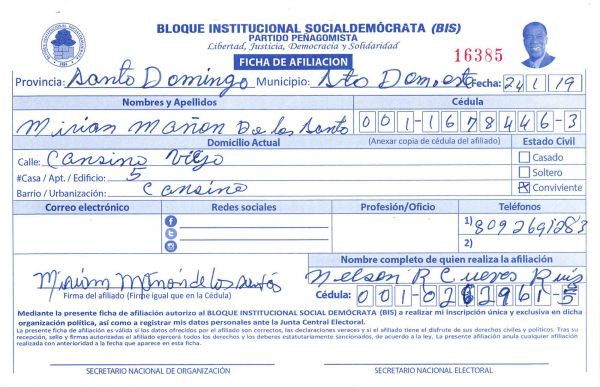 BLOQUE INSTITUCIONAL SOCIALDEMÓCRATA (BIS)
PARTIDO PEÑAGOMISTA
Libertad, Justicia, Democracia y Solidaridad
FICHA DE AFILIACION
16385
Provincia: Santo Domingo Municipio: Sto Dom este Fecha: 24 1 19
Nombres y Apellidos Cédula
Mirian Mañon De los Santo 001-1678446-3
Domicilio Actual (Anexar copia de cédula del afiliado) Estado Civil
Calle: Cansino Viejo
#Casa / Apt. / Edificio: 5
Barrio / Urbanización: Cansino
Casado
Soltero
X Conviviente
Correo electrónico Redes sociales Profesión/Oficio Teléfonos
1) 8092691283
2)
Nombre completo de quien realiza la afiliación
Miriam Mañón de los santos Nelson R Cueves Ruis
Firma del afiliado (Firme igual que en la Cédula) Cédula: 001-0262961-5
Mediante la presente ficha de afiliación autorizo al BLOQUE INSTITUCIONAL SOCIAL DEMÓCRATA (BIS) a realizar mi inscripción única y exclusiva en dicha
organización política, así como a registrar mis datos personales ante la Junta Central Electoral.
La presente ficha de afiliación es válida si los datos ofrecidos por el afiliado son correctos, las declaraciones veraces y si el afiliado tiene el disfrute de sus derechos civiles y políticos. Tras su
recepción, sello y firmas autorizadas el afiliado ejercerá todos los derechos y los deberes estatutariamente consignados, de acuerdo a la ley. La presente afiliación anula cualquier afiliación
realizada con anterioridad a la fecha que aparece en esta ficha.
SECRETARIO NACIONAL DE ORGANIZACIÓN SECRETARIO NACIONAL ELECTORAL